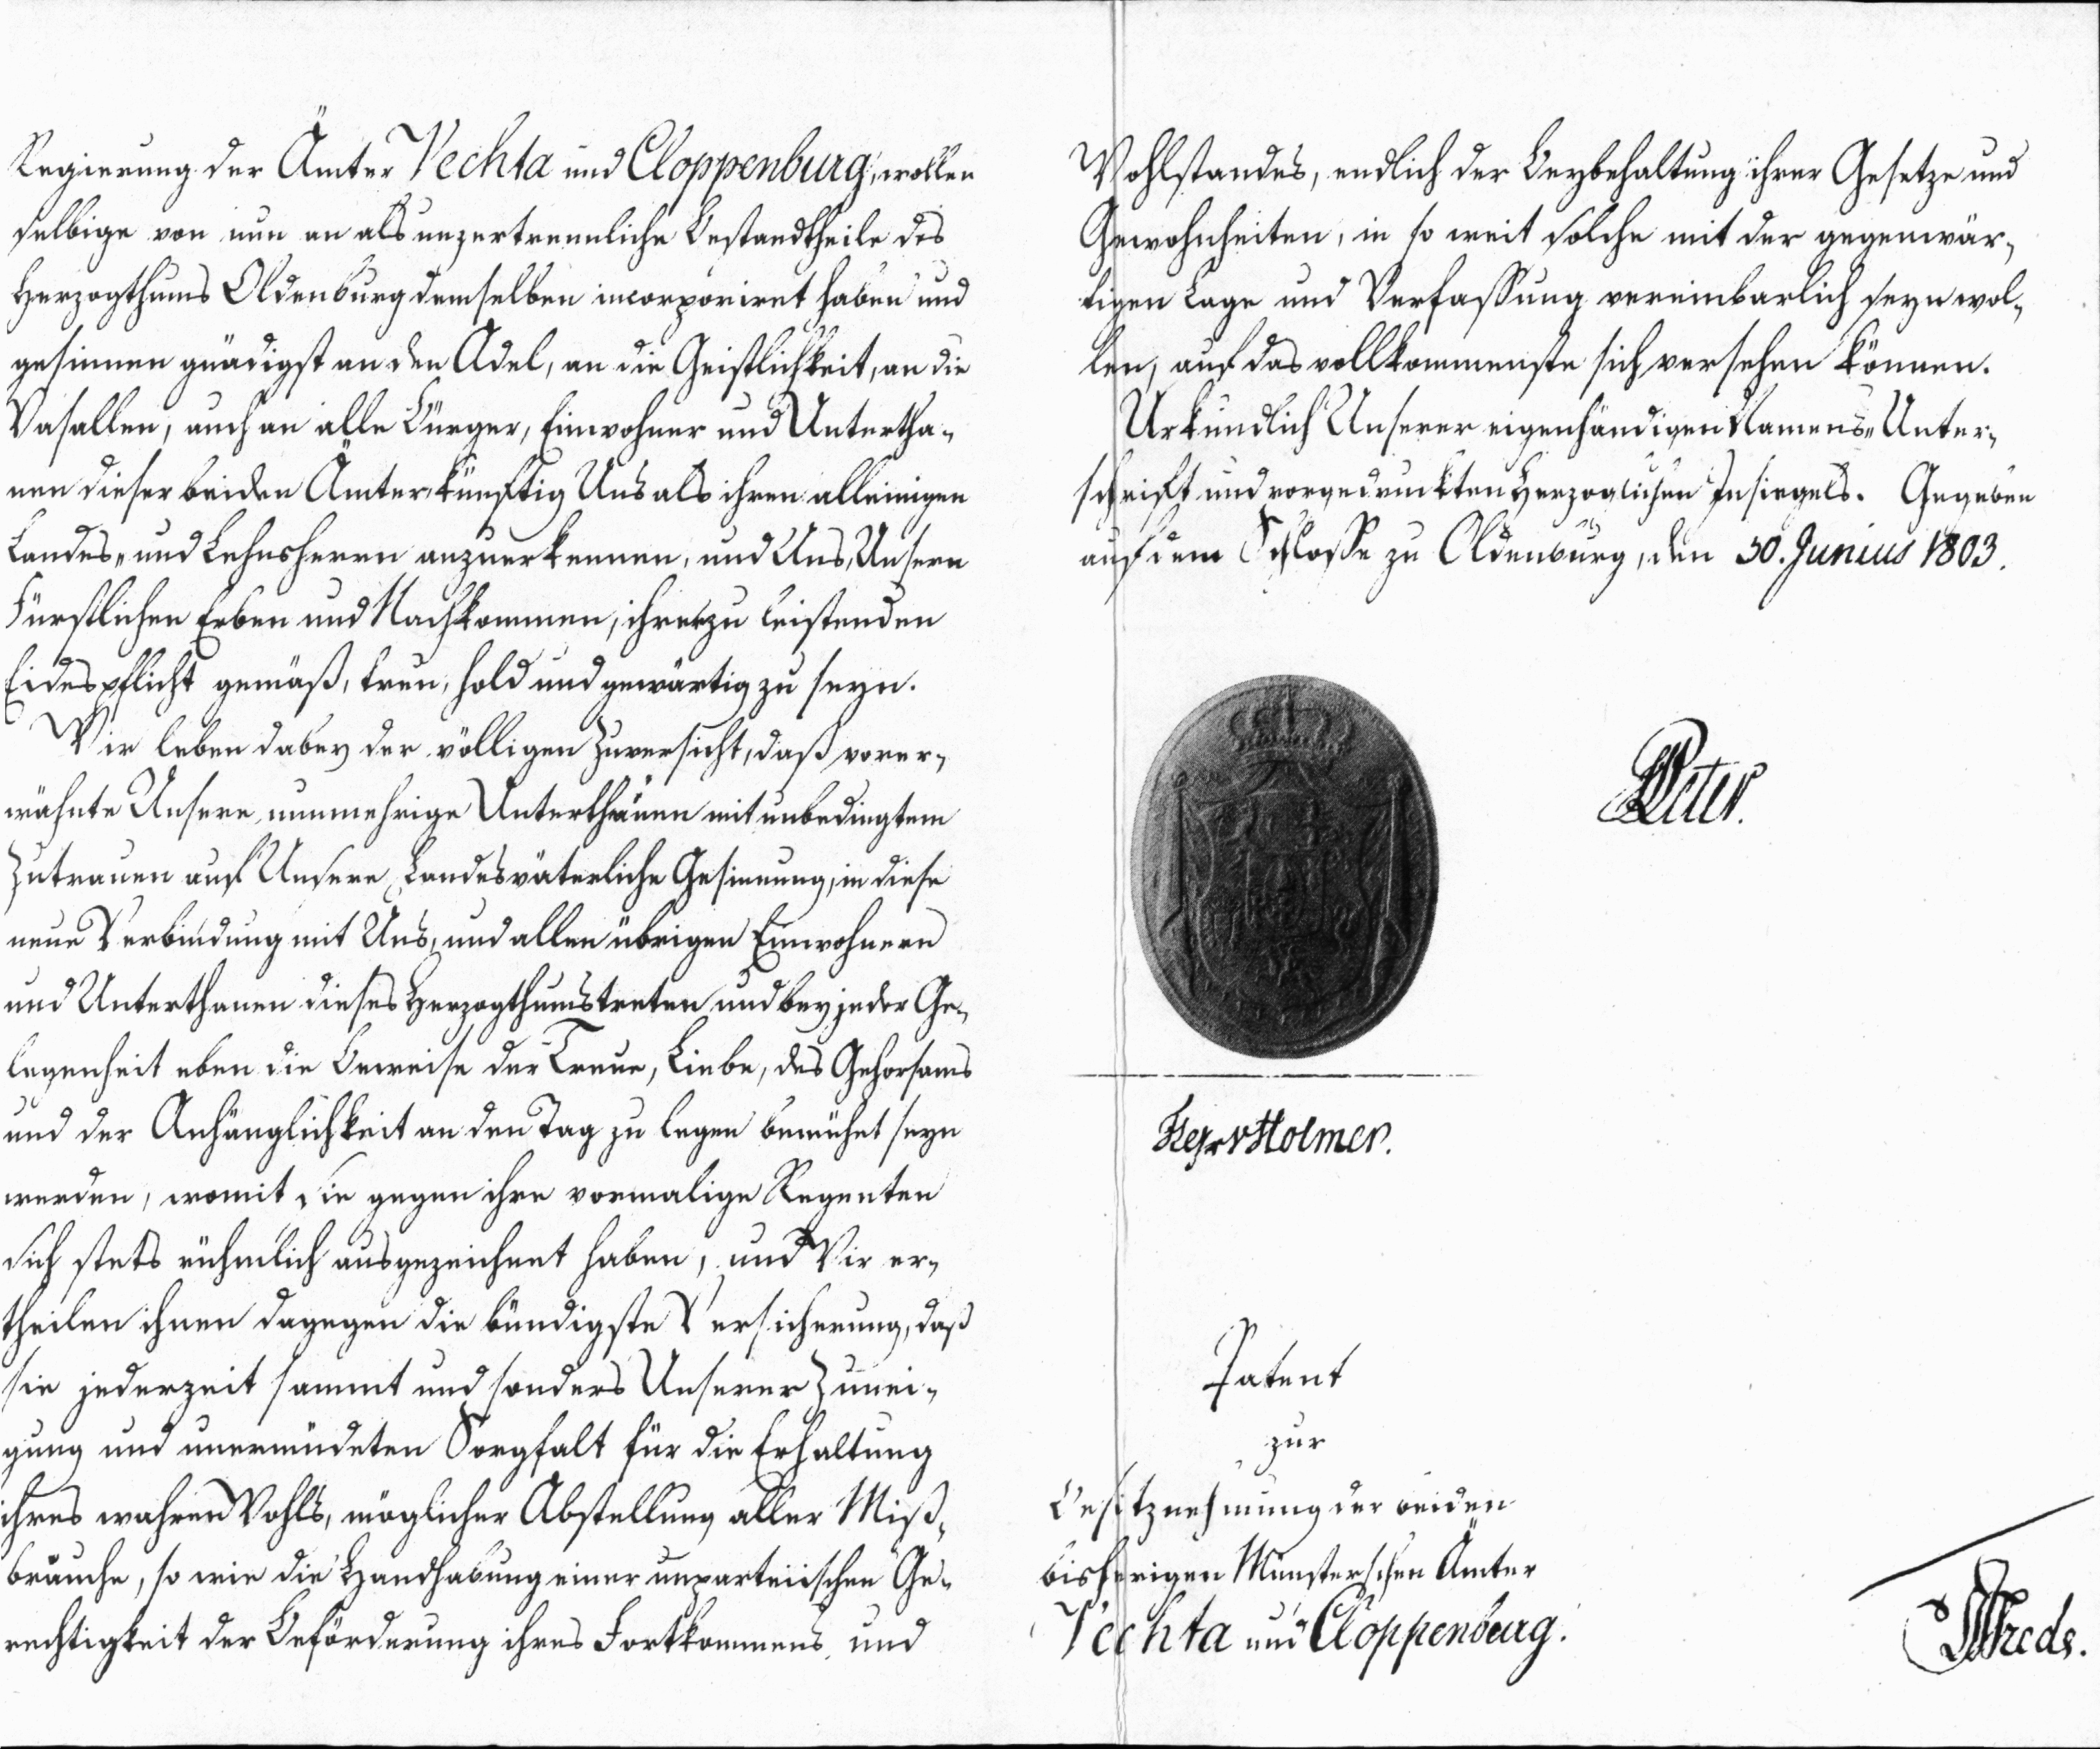 Regierung der Ämter Vechta und Cloppenburg, wollen
selbige von nun an als unzertrennliche Bestandtheile des
Herzogthums Oldenburg demselben incorporiret haben und
gesinnen gnädigst an den Adel, an die Geistlichkeit, an die
Vasallen, auch an alle Bürger, Einwohner und Untertha-
nen dieser beiden Ämter, künftig Uns als ihren alleinigen
Landes- und Lehnsherrn anzuerkennen, und Uns, Unsern
Fürstlichen Erben und Nachkommen, ihrer zu leistenden
Eidespflicht gemäß, treu, hold und gewärtig zu seyn.
Wir leben dabey der völligen Zuversicht, daß vorer-
wähnte Unsere nunmehrige Unterthanen mit unbedingtem
Zutrauen auf Unsere Landesväterliche Gesinnung, in diese
neue Verbindung mit Uns, und allen übrigen Einwohnern
und Unterthanen dieses Herzogthums treten und bey jeder Ge-
legenheit eben die Beweise der Treue, Liebe, des Gehorsams
und der Anhänglichkeit an den Tag zu legen bemühet seyn
werden, womit sie gegen ihre vormalige Regenten
sich stets rühmlich ausgezeichnet haben, und Wir er-
theilen ihnen dagegen die bündigste Versicherung, daß
sie jederzeit sammt und sonders Unserer Zunei-
gung und unermüdeten Sorgfalt für die Erhaltung
ihres wahren Wohls, möglicher Abstellung aller Miß-
bräuche, so wie die Handhabung einer unparteiischen Ge-
rechtigkeit der Beförderung ihres Fortkommens und
Wohlstandes, endlich der Beybehaltung ihrer Gesetze und
Gewohnheiten, in so weit solche mit der gegenwär-
tigen Lage und Verfassung vereinbarlich seyn wol-
len, auf das vollkommenste sich versehen können.
Urkundlich Unserer eigenhändigen Namens-Unter-
schrift und vorgedruckten Herzoglichen Insiegels. Gegeben
auf dem Schlosse zu Oldenburg, den 30. Junius 1803.
Peter.
v Holmer.
Patent
zur
Besitznehmung der beiden
bisherigen Münsterschen Ämter
Vechta und Cloppenburg.